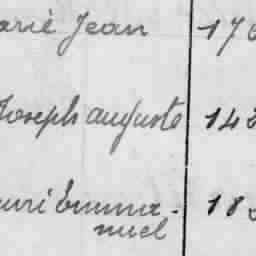 arie Jean 176
Joseph auguste 142
enri Emma-
nuel 18